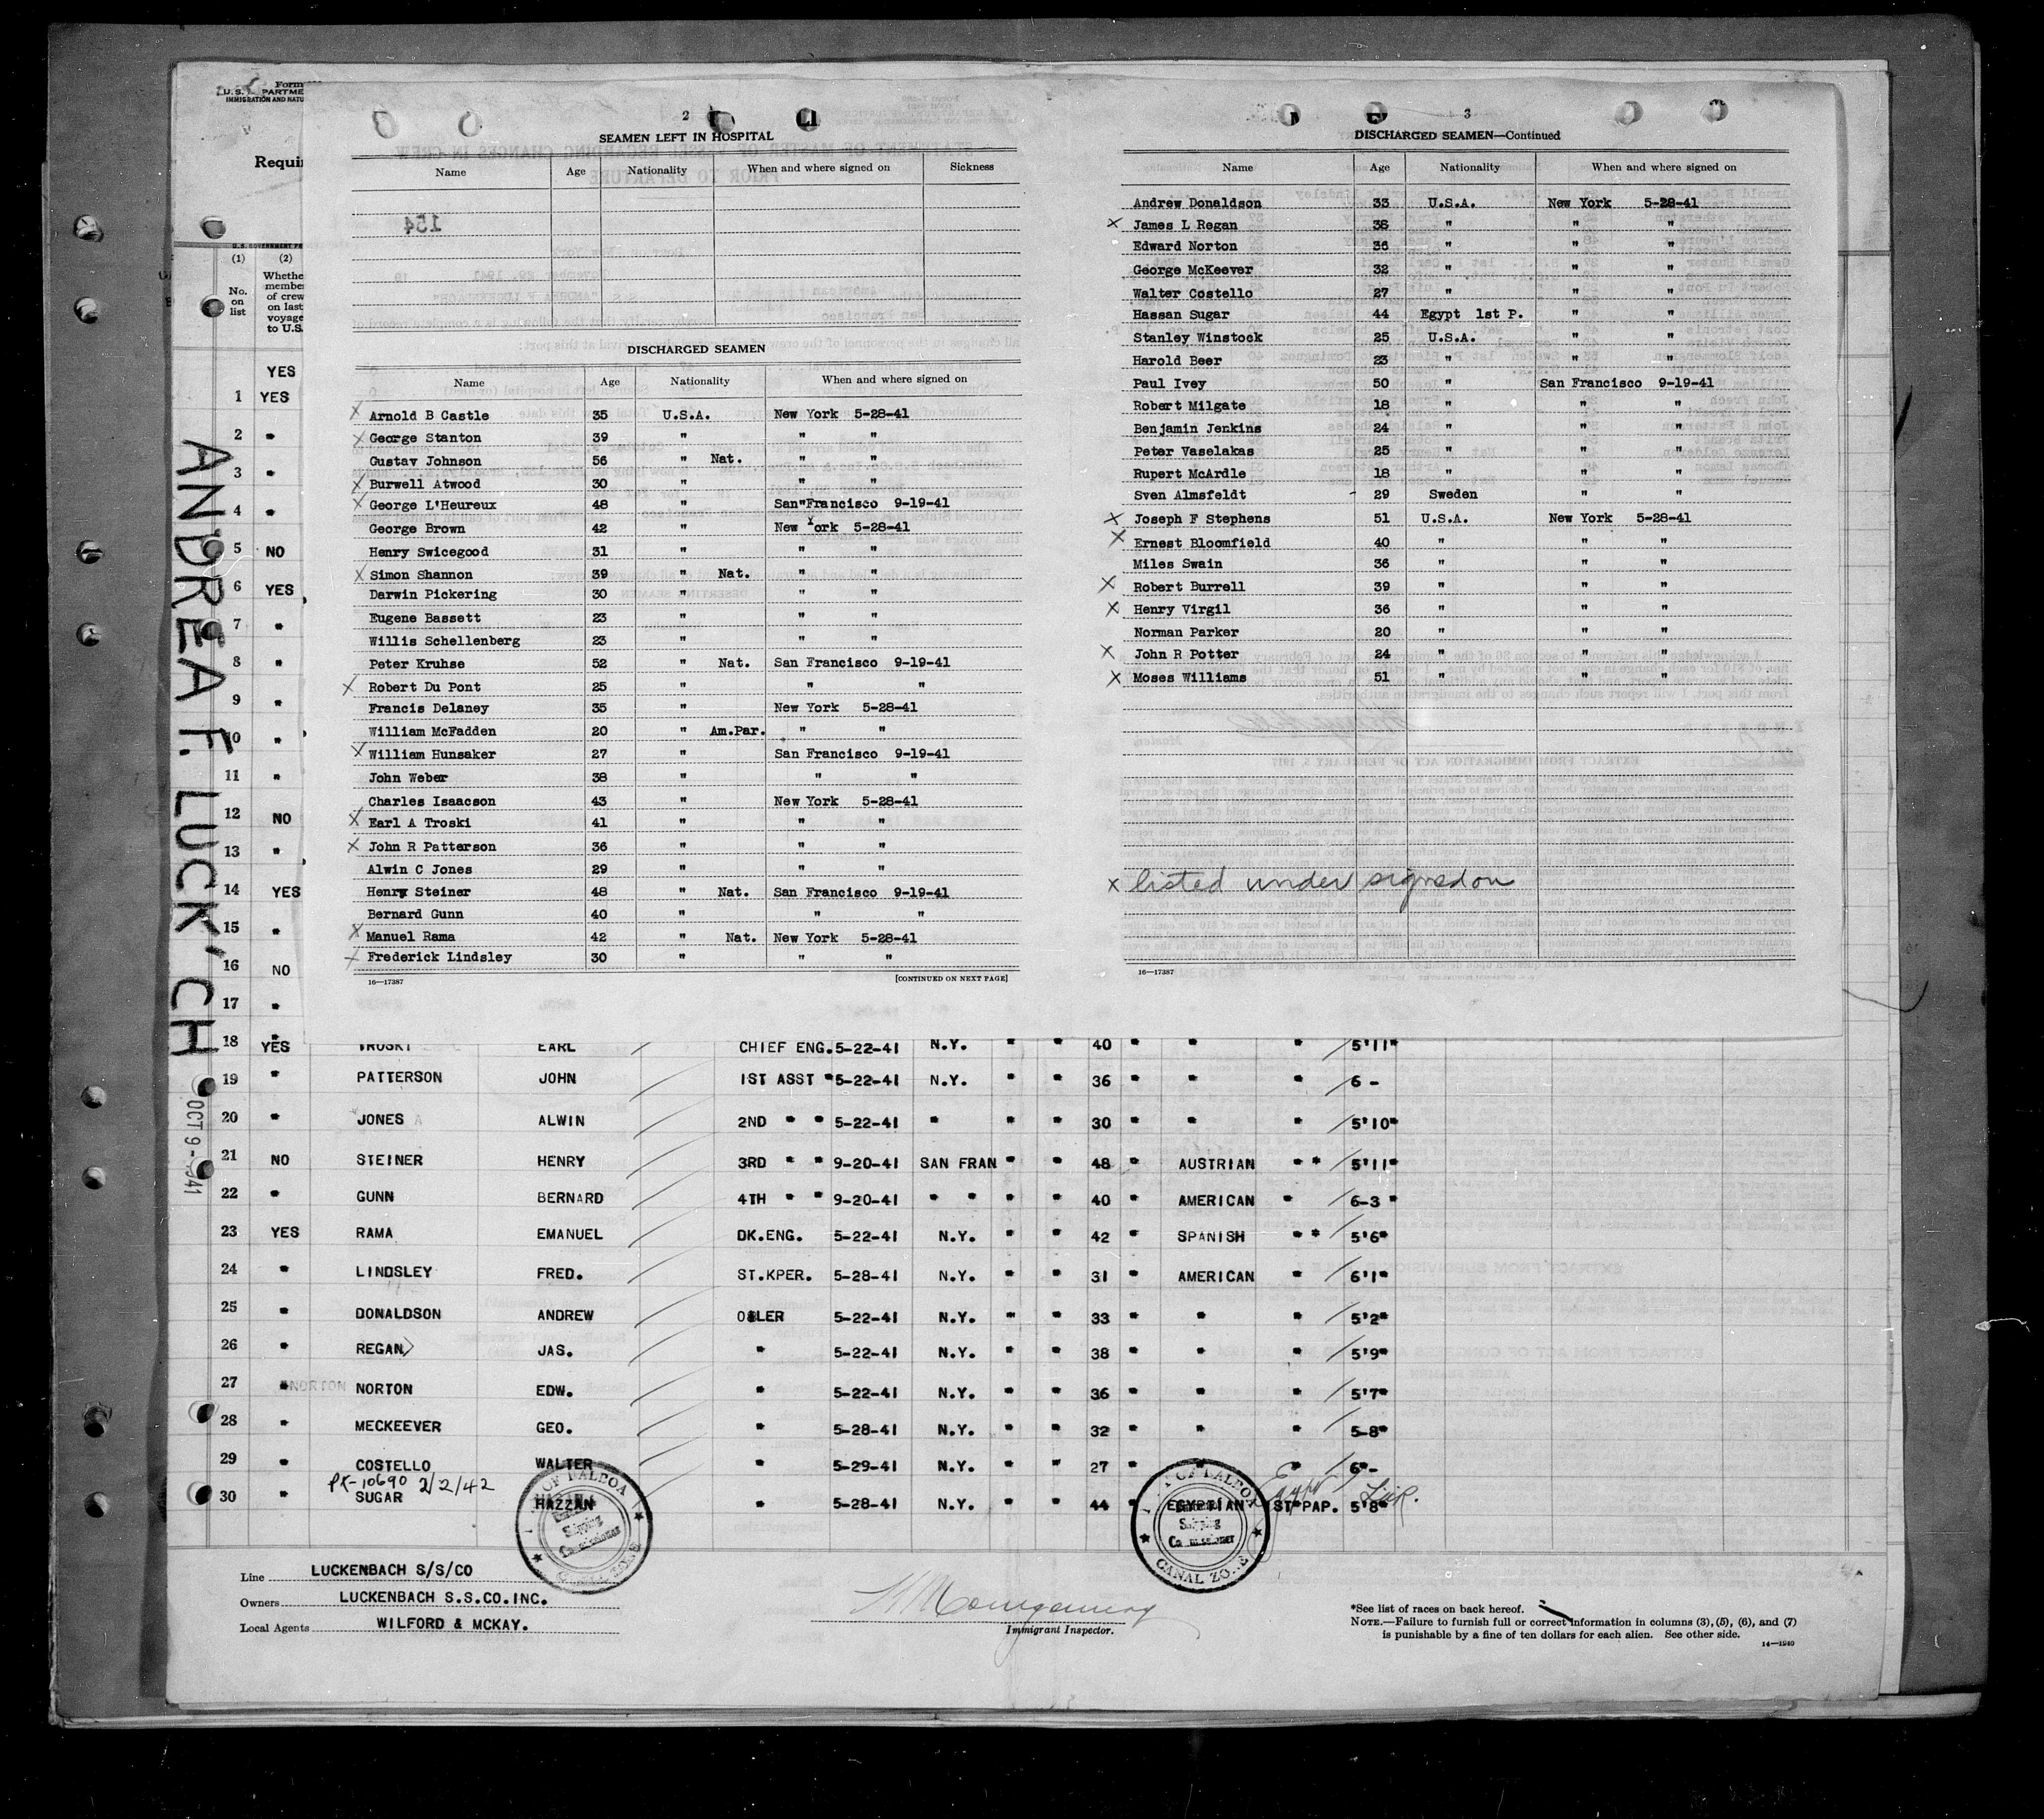 Form
U.S. DEPARTME
IMMIGRATION AND NATU
Requi
U.S. GOVERNMENT PR
(1) (2)
No. on list
Whethe
membe
of crew
on last
voyage
to U.S.
YES
1 YES
2 "
3 "
4 "
5 NO
6 YES
7 "
8 "
9 "
10 "
11 "
12 NO
13 "
14 YES
15 "
16 NO
17 "
ANDREA F. LUCK'CH
OCT 9 - 1941
2
SEAMEN LEFT IN HOSPITAL
Name Age Nationality When and where signed on Sickness
154
DISCHARGED SEAMEN
Name Age Nationality When and where signed on
X Arnold B Castle 35 U.S.A. New York 5-28-41
X George Stanton 39 " " "
Gustav Johnson 56 " Nat. " "
X Burwell Atwood 30 " " "
X George L'Heureux 48 " San Francisco 9-19-41
George Brown 42 " New York 5-28-41
Henry Swicegood 31 " " "
X Simon Shannon 39 " Nat. " "
Darwin Pickering 30 " " "
Eugene Bassett 23 " " "
Willis Schellenberg 23 " " "
Peter Kruhse 52 " Nat. San Francisco 9-19-41
X Robert Du Pont 25 " " "
Francis Delaney 35 " New York 5-28-41
William McFadden 20 " Am.Par. " "
X William Hunsaker 27 " San Francisco 9-19-41
John Weber 38 " " "
Charles Isaacson 43 " New York 5-28-41
X Earl A Troski 41 " " "
X John R Patterson 36 " " "
Alwin C Jones 29 " " "
Henry Steiner 48 " Nat. San Francisco 9-19-41
Bernard Gunn 40 " " "
X Manuel Rama 42 " Nat. New York 5-28-41
X Frederick Lindsley 30 " " "
16—17387 [CONTINUED ON NEXT PAGE]
3
DISCHARGED SEAMEN—Continued
Name Age Nationality When and where signed on
Andrew Donaldson 33 U.S.A. New York 5-28-41
X James L Regan 38 " " "
Edward Norton 36 " " "
George McKeever 32 " " "
Walter Costello 27 " " "
Hassan Sugar 44 Egypt 1st P. " "
Stanley Winstock 25 U.S.A. " "
Harold Beer 23 " " "
Paul Ivey 50 " San Francisco 9-19-41
Robert Milgate 18 " " "
Benjamin Jenkins 24 " " "
Peter Vaselakas 25 " " "
Rupert McArdle 18 " " "
Sven Almsfeldt 29 Sweden " "
X Joseph F Stephens 51 U.S.A. New York 5-28-41
X Ernest Bloomfield 40 " " "
Miles Swain 36 " " "
X Robert Burrell 39 " " "
X Henry Virgil 36 " " "
Norman Parker 20 " " "
X John R Potter 24 " " "
X Moses Williams 51 " " "
X listed under signed on
16—17387
18 YES TROSKI EARL CHIEF ENG. 5-22-41 N.Y. " " 40 " " " 5'11"
19 " PATTERSON JOHN 1ST ASST " 5-22-41 N.Y. " " 36 " " " 6 -
20 " JONES A ALWIN 2ND " " 5-22-41 " " " 30 " " " 5'10"
21 NO STEINER HENRY 3RD " " 9-20-41 SAN FRAN " " 48 " AUSTRIAN " " 5'11"
22 " GUNN BERNARD 4TH " " 9-20-41 " " " " 40 " AMERICAN " 6-3 "
23 YES RAMA EMANUEL DK.ENG. 5-22-41 N.Y. " " 42 " SPANISH " " 5'6"
24 " LINDSLEY FRED. ST.KPER. 5-28-41 N.Y. " " 31 " AMERICAN " 6'1"
25 " DONALDSON ANDREW OILER 5-22-41 N.Y. " " 33 " " " 5'2"
26 " REGAN JAS. " 5-22-41 N.Y. " " 38 " " " 5'9"
27 " NORTON NORTON EDW. " 5-22-41 N.Y. " " 36 " " " 5'7"
28 " MECKEEVER GEO. " 5-28-41 N.Y. " " 32 " " " 5-8"
29 " COSTELLO WALTER " 5-29-41 N.Y. " " 27 " " " 6"-
PR-10690 2/2/42
30 " SUGAR HAZZAN " 5-28-41 N.Y. " " 44 " EGYPTIAN 1ST PAP. 5'8"
Egypt
OF BALBOA
Shipping
Commissioner
CANAL ZONE
OF BALBOA
Shipping
Commissioner
CANAL ZONE
Line LUCKENBACH S/S/CO
Owners LUCKENBACH S.S.CO.INC.
Local Agents WILFORD & MCKAY.
Montgomery
Immigrant Inspector.
*See list of races on back hereof.
NOTE.—Failure to furnish full or correct information in columns (3), (5), (6), and (7)
is punishable by a fine of ten dollars for each alien. See other side.
14—1940